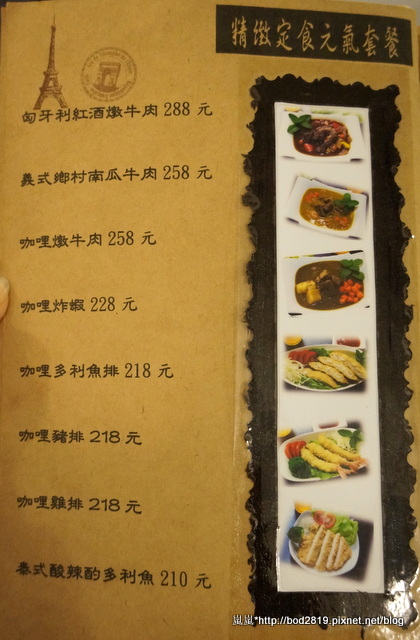 精緻定食元氣套餐
匈牙利紅酒燉牛肉 288 元
義式鄉村南瓜牛肉 258 元
咖哩燉牛肉 258 元
咖哩炸蝦 228 元
咖哩多利魚排 218 元
咖哩豬排 218 元
咖哩雞排 218 元
泰式酸辣酌多利魚 210 元
嵐嵐*http://bod2819.pixnet.net/blog